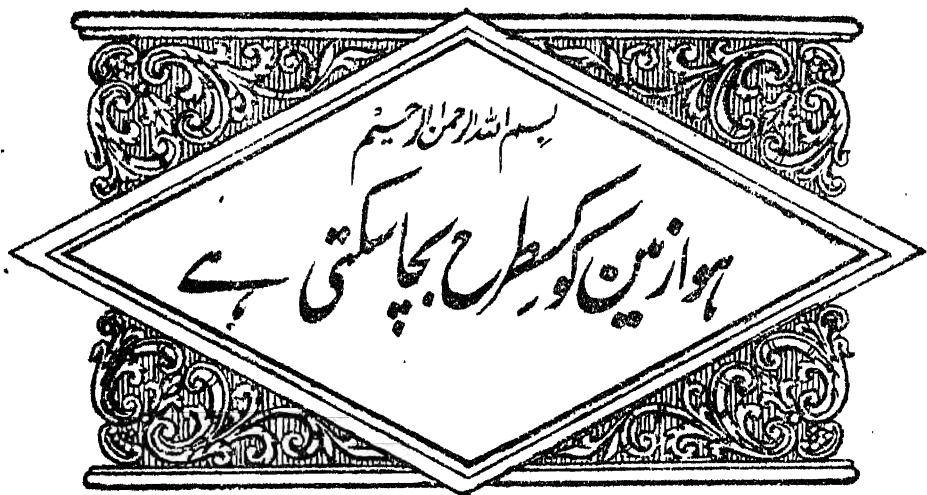 بسم اللہ الرحمن الرحیم
ہوا زمین کو کسطرح بچا سکتی ہے